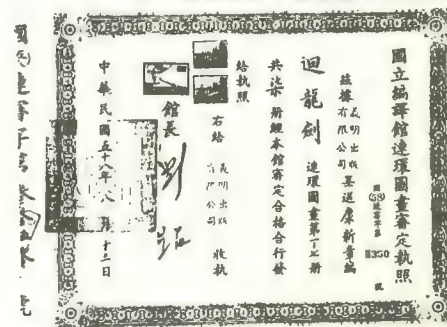 國立編譯館連環圖畫審定執照
國(58)連審字第
350
號
茲據義明出版有限公司呈送康新章編
迴龍劍 連環圖畫第1-7冊
共柒冊經本館審定合格合行發
給執照
右給 義明出版有限公司 收執
館長 劉
中華民國五十八年八月十三日